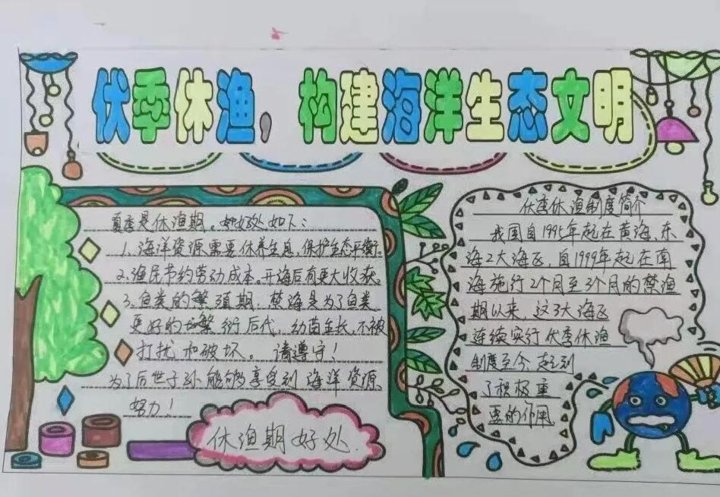 伏季休渔，构建海洋生态文明
夏季是休渔期。如好处如下：
1.海洋资源需要休养生息，保护生态平衡。
2.渔民节约劳动成本。开海后有更大收获
3.鱼类的繁殖期，禁海是为了鱼类
更好的繁衍后代，幼苗生长，不被
打扰和破坏。请遵守！
为了后世子孙能够享受到海洋资源
努力！
休渔期好处
伏季休渔制度简介
我国自1995年起在黄海、东
海2大海区，自1999年起在南
海施行2个月至3个月的禁渔
期以来，这3大海区
连续实行伏季休渔
制度至今，起到
了积极重
要的作用